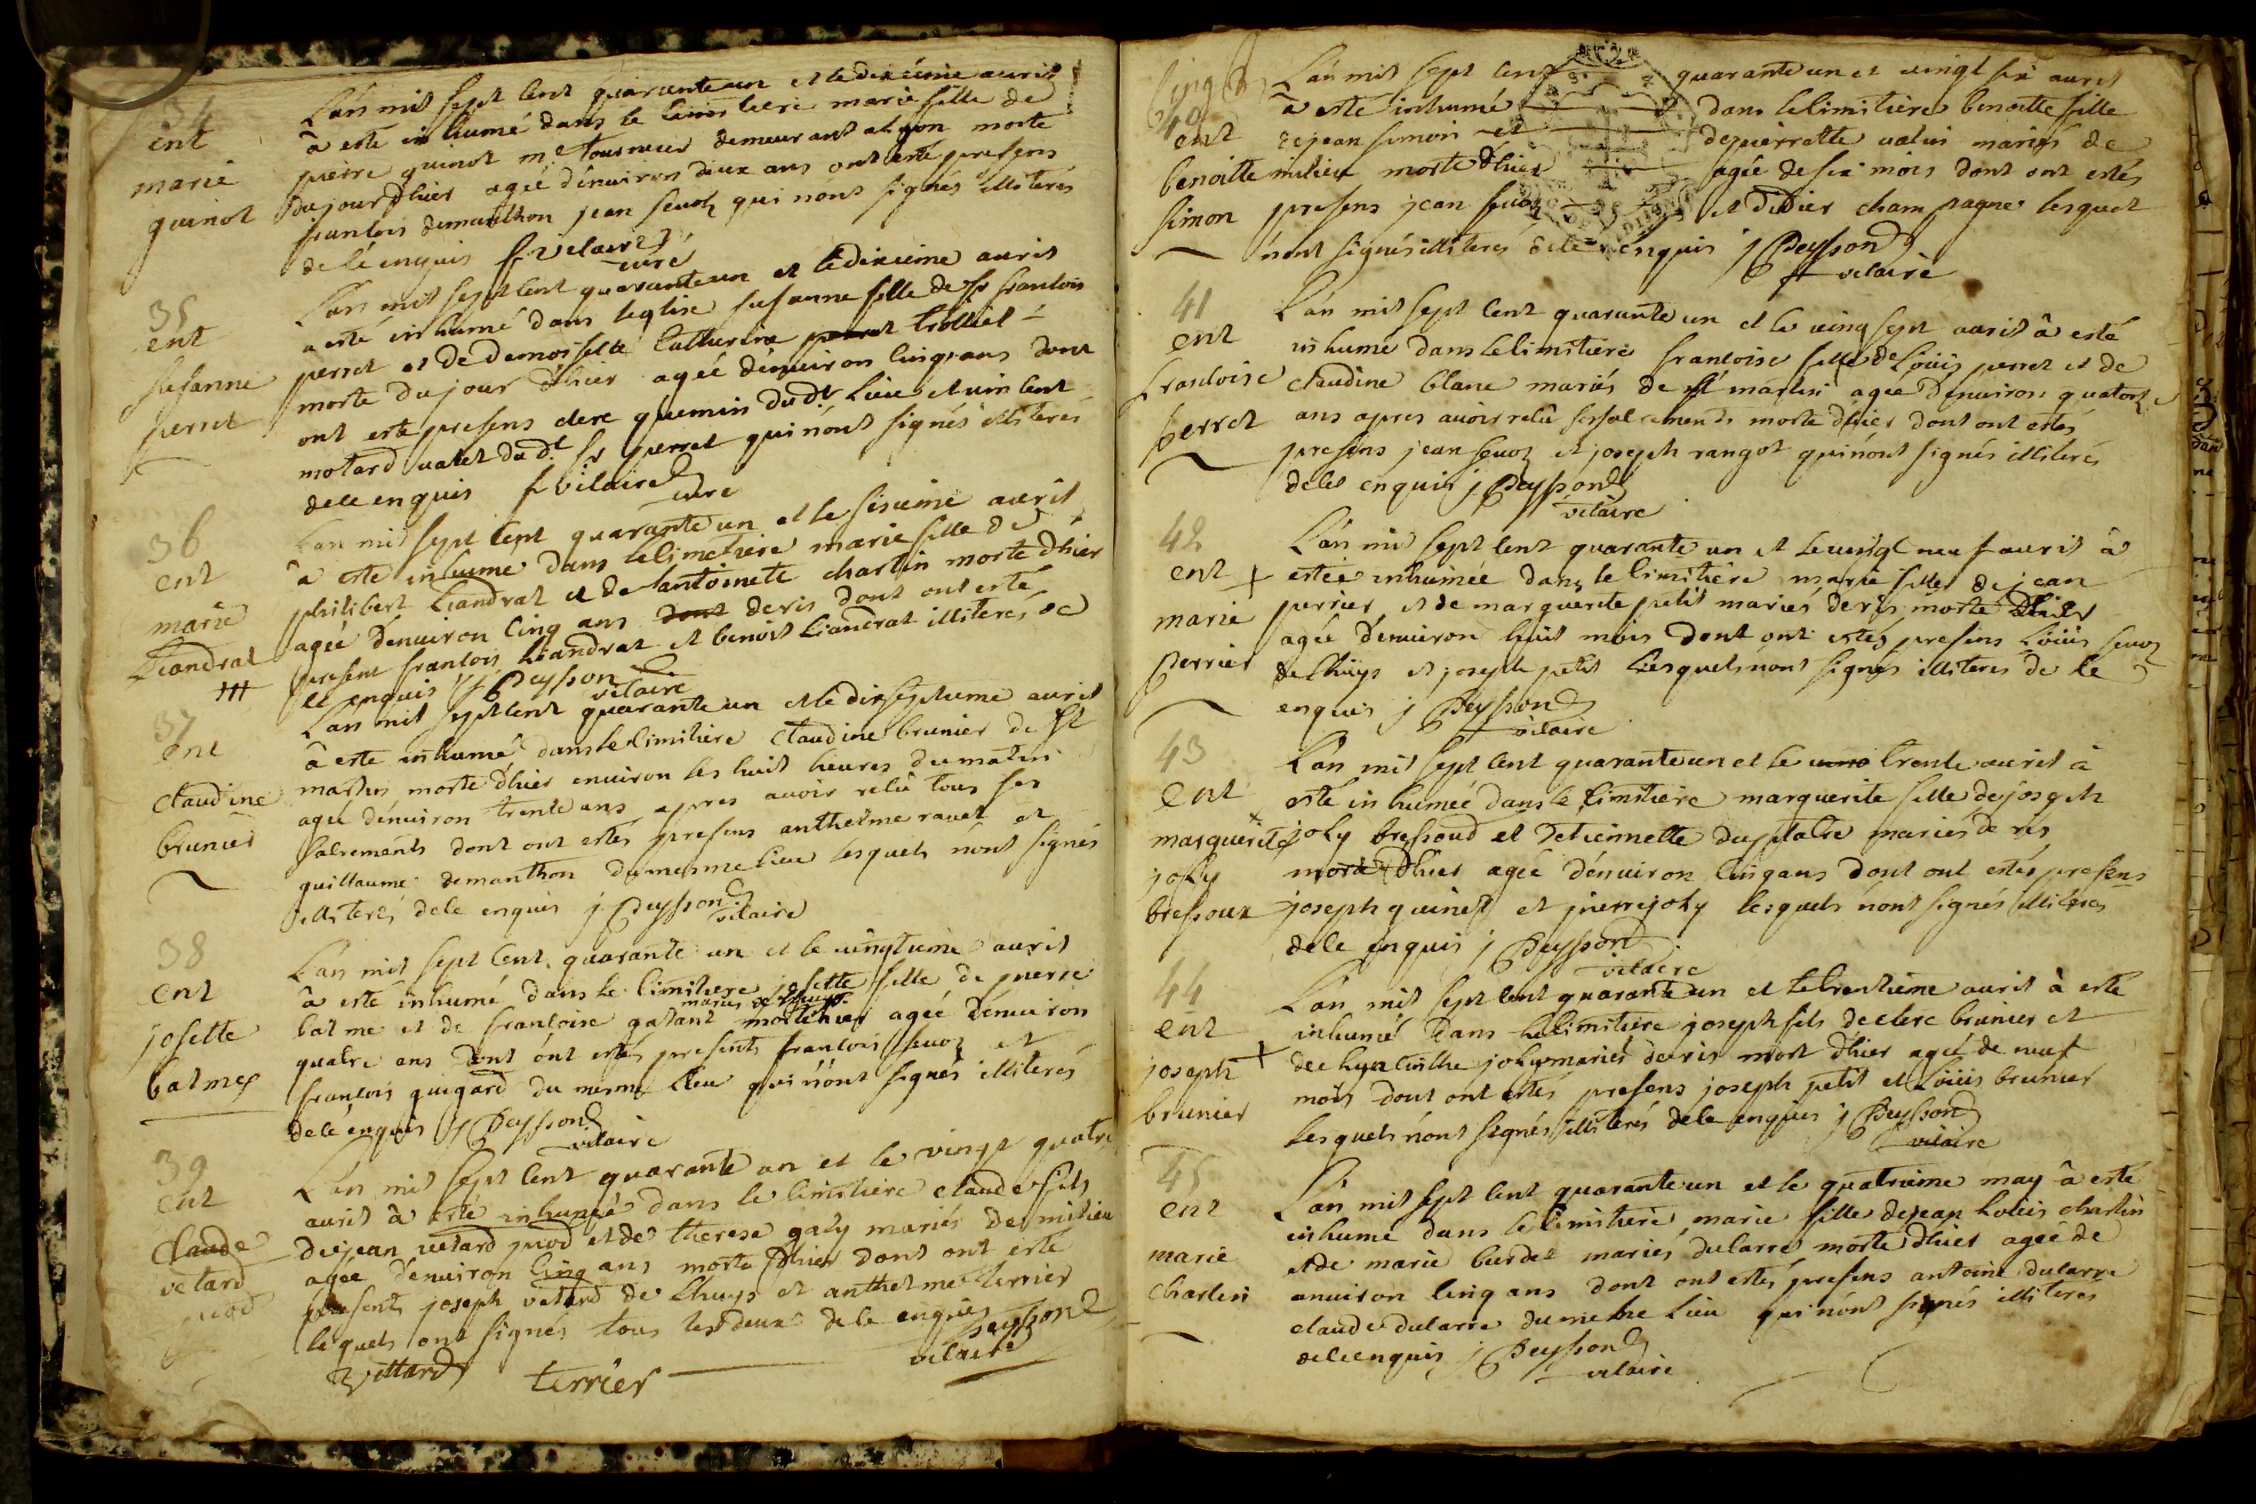 34
ent
marie
guinot
L'an mil sept cent quarante un et le dixième avril
à esté inhumé dans le cimetiere marie fille de
pierre guinot m.e tourneur demeurant a lyon morte
du jour d'hier agée d'enuiron deux ans ont esté presens
francois demanthon jean seuoz qui n'ont signés illiterés
de ce enquis f vilaire
curé
35
ent
susanne
perret
L'an mil sept cent quarante un et le dixieme avril
a esté inhumé dans leglise susanne fille de sr francois
perret et de demoiselle catherine trolliet
morte du jour d'hier agée d'enuiron cinq ans dont
ont esté presens clere guemin du dt lieu et uincent
motard ualet du dt sr perret qui n'ont signés illiterés
de ce enquis f vilaire
curé
36
ent
marie
Liandrat
L'an mil sept cent quarante un et le sisieme avril
à esté inhumé dans le cimetiere marie fille de
philibert Liandrat et de antoinete charlin morte d'hier
agée d'enuiron cinq ans dont de ris dont ont esté
present francois Liandrat et benoist Liandrat illiterés de
ce enquis j Peysson
vicaire
37
ent
claudine
brunier
L'an mil sept cent quarante un et le dix septieme avril
à esté inhumé dans le cimitiere claudine brunier de st
martin morte d'hier enuiron les huit heures du matin
agée d'enuiron trente ans apres auoir reçû tous ses
sacrements dont ont estés presens anthelme rauet et
guillaume demanthon du mesme lieu lesquels n'ont signés
illiterés de ce enquis j Peysson
vicaire
38
ent
josette
balmes
L'an mil sept cent quarante un et le uingtieme avril
à esté inhumé dans le cimitiere josette fille de pierre
mariés de Lhuys
balme et de francoise galant morte hier agée d'enuiron
quatre ans dont ont estés presents francois seuoz et
francois guigard du mesme lieu qui n'ont signés illiterés
de ce enquis j Peysson
vicaire
39
ent
claude
vetard
juod
L'an mil sept cent quarante un et le vingt quatre
avril à esté inhumé dans le cimitiere claude fils
de jean uetard juod et de therese galy mariés de milieu
agée d'enuiron cinq ans morte d'hier dont ont esté
presents joseph vetard de Lhuys et anthelme terrier
lesquels ont signés tous les deux de ce enquis Peysson
vicaire
Vettard terrier
cinq
40
ent
benoitte
simon
L'an mil sept cent quarante un et uingt six avril
à esté inhumé dans le cimitiere benoitte fille
de jean simon et de pierrette ualin mariés de
milieu morte d'hier agée de six mois dont ont estés
presens jean seuoz et didier champagne lesquel
n'ont signés illiterés de ce enquis j Peysson
vicaire
41
ent
francoise
perret
L'an mil sept cent quarante un et le uing sept avril à esté
inhumé dans le cimitiere francoise fille de Loüis perret et de
claudine blanc mariés de st martin agée d'enuiron quatorze
ans apres auoir reçû ses sacrements morte d'hier dont ont estés
presens jean seuoz et joseph rangot qui n'ont signés illiterés
de ce enquis j Peysson
vicaire
42
ent
marie
perrier
L'an mil sept cent quarante un et le uingt neuf avril à
estée inhumée dans le cimitiere marie fille de jean
perrier et de marguerite petit mariés de ris morte d'hier
agée d'enuiron huit mois dont ont estés presens Loüis seuoz
de Lhuys et joseph petit lesquels n'ont signés illiterés de ce
enquis j Peysson
vicaire
43
ent
marguerite
joly
bressoux
L'an mil sept cent quarante un et le trente avril à
esté inhumée dans le cimitiere marguerite fille de joseph
joly bressoud et d'etiennette duplatre mariés de ris
morte d'hier agée d'enuiron cinq ans dont ont estés presens
joseph guinet et pierre joly lesquels n'ont signés illiterés
de ce enquis j Peysson
vicaire
44
ent
joseph
brunier
L'an mil sept cent quarante un et le trentieme avril à esté
inhumé dans le cimitiere joseph fils de clere brunier et
de hyacinthe joly mariés de ris mort d'hier agé de neuf
mois dont ont estés presens joseph petit et Loüis brunier
lesquels n'ont signés illiterés de ce enquis j Peysson
vicaire
45
ent
marie
charlin
L'an mil sept cent quarante un et le quatrieme may à esté
inhumé dans le cimitiere marie fille de jean Loüis charlin
et de marie burdet mariés dularre morte d'hier agée de
enuiron cinq ans dont ont estés presens antoine dularre
claude dularre du meme lieu qui n'ont signés illiterés
de ce enquis j Peysson
vicaire